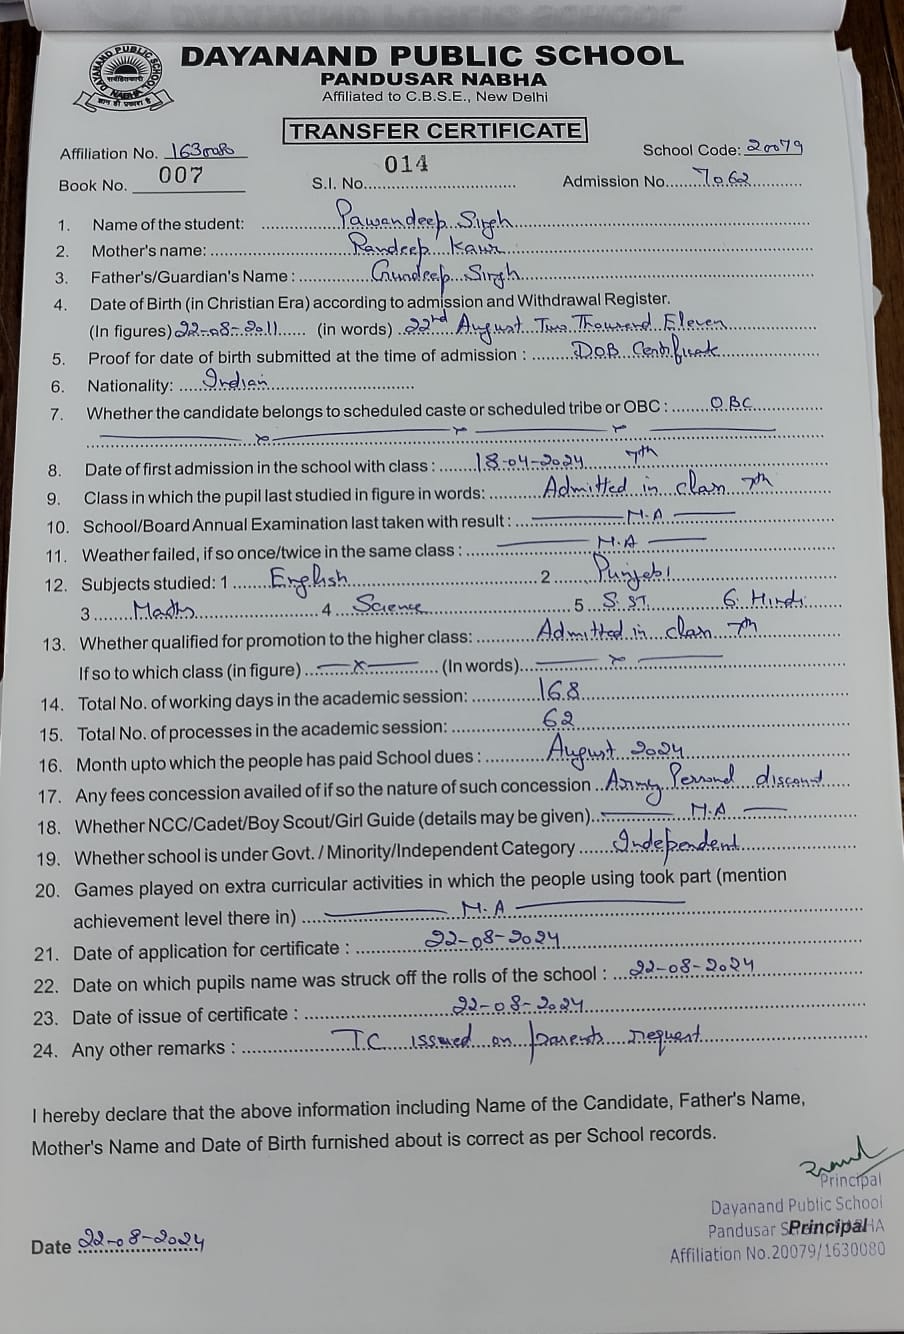 DAYANAND PUBLIC SCHOOL
PANDUSAR NABHA
Affiliated to C.B.S.E., New Delhi
TRANSFER CERTIFICATE
Affiliation No. 1630080 School Code: 20079
Book No. 007 S.I. No. 014 Admission No. 7062
1. Name of the student: Pawandeep Singh
2. Mother's name: Ramdeep Kaur
3. Father's/Guardian's Name : Gurdeep Singh
4. Date of Birth (in Christian Era) according to admission and Withdrawal Register.
(In figures) 22-08-2011 (in words) 22nd August Two Thousand Eleven
5. Proof for date of birth submitted at the time of admission : DOB Certificate
6. Nationality: Indian
7. Whether the candidate belongs to scheduled caste or scheduled tribe or OBC : OBC
8. Date of first admission in the school with class : 18-04-2024 7th
9. Class in which the pupil last studied in figure in words: Admitted in class 7th
10. School/Board Annual Examination last taken with result : N.A
11. Weather failed, if so once/twice in the same class : N.A
12. Subjects studied: 1 English 2 Punjabi
3 Maths 4 Science 5 S.ST. 6. Hindi
13. Whether qualified for promotion to the higher class: Admitted in class 7th
If so to which class (in figure) x (In words) x
14. Total No. of working days in the academic session: 168
15. Total No. of processes in the academic session: 62
16. Month upto which the people has paid School dues : August 2024
17. Any fees concession availed of if so the nature of such concession Army Personal discount
18. Whether NCC/Cadet/Boy Scout/Girl Guide (details may be given) N.A
19. Whether school is under Govt. / Minority/Independent Category Independent
20. Games played on extra curricular activities in which the people using took part (mention
achievement level there in) N.A
21. Date of application for certificate : 22-08-2024
22. Date on which pupils name was struck off the rolls of the school : 22-08-2024
23. Date of issue of certificate : 22-08-2024
24. Any other remarks : TC issued on parents request
I hereby declare that the above information including Name of the Candidate, Father's Name,
Mother's Name and Date of Birth furnished about is correct as per School records.
Principal
Dayanand Public School
Pandusar Principal
Affiliation No.20079/1630080
Date 22-08-2024